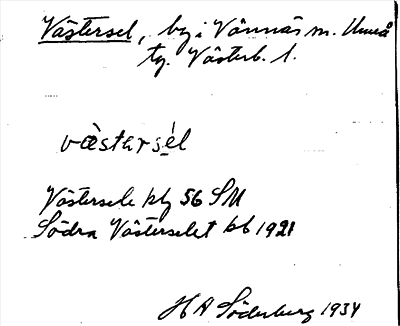 Västersel, by i Vännäs m. Umeå
tg. Västerb. l.
västarsél
Västersele by 56 SM
Södra Västerselet kb 1921
H A Söderberg 1934